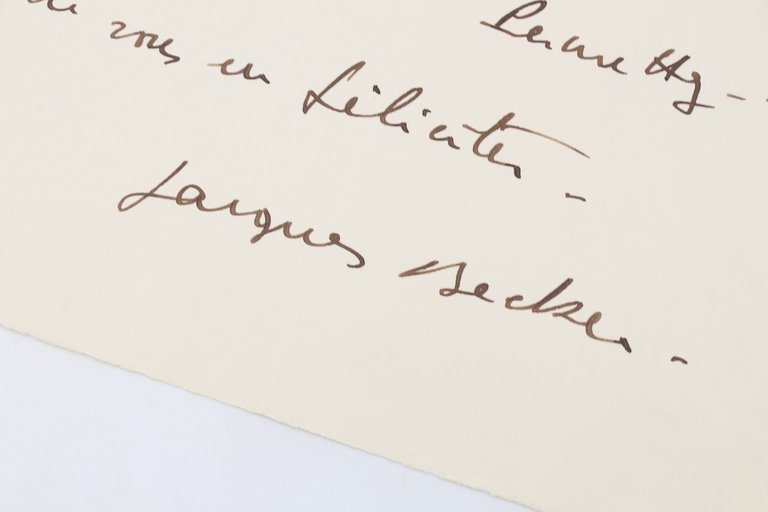 Permettez -
de vous en féliciter -
Jacques Becker -